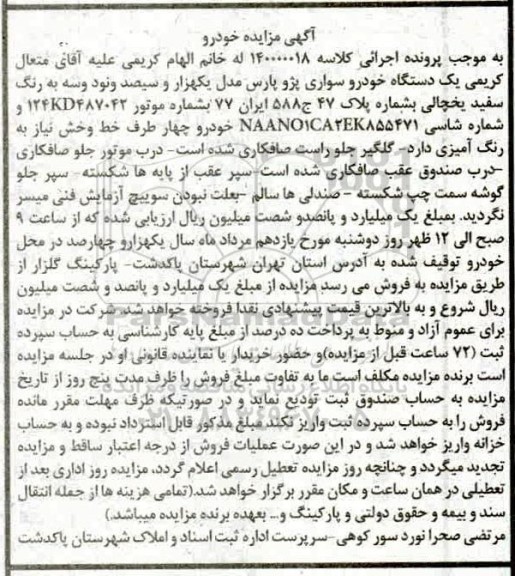 آگهی مزایده خودرو
به موجب پرونده اجرائی کلاسه ۱۴۰۰۰۰۱۸ له خانم الهام کریمی علیه آقای متعال
کریمی یک دستگاه خودرو سواری پژو پارس مدل یکهزار و سیصد ونود وسه به رنگ
سفید یخچالی بشماره پلاک ۴۷ ج۵۸۸ ایران ۷۷ بشماره موتور ۱۲۴KD۴۸۷۰۴۲ و
شماره شاسی NAANO۱CA۲EK۸۵۵۴۷۱ خودرو چهار طرف خط وخش نیاز به
رنگ آمیزی دارد- گلگیر جلو راست صافکاری شده است- درب موتور جلو صافکاری
-درب صندوق عقب صافکاری شده است-سپر عقب از پایه ها شکسته- سپر جلو
گوشه سمت چپ شکسته - صندلی ها سالم -بعلت نبودن سوییچ آزمایش فنی میسر
نگردید. بمبلغ یک میلیارد و پانصدو شصت میلیون ریال ارزیابی شده که از ساعت ۹
صبح الی ۱۲ ظهر روز دوشنبه مورخ یازدهم مرداد ماه سال یکهزارو چهارصد در محل
خودرو توقیف شده به آدرس استان تهران شهرستان پاکدشت- پارکینگ گلزار از
طریق مزایده به فروش می رسد مزایده از مبلغ یک میلیارد و پانصد و شصت میلیون
ریال شروع و به بالاترین قیمت پیشنهادی نقدا فروخته خواهد شد. شرکت در مزایده
برای عموم آزاد و منوط به پرداخت ده درصد از مبلغ پایه کارشناسی به حساب سپرده
ثبت (۷۲ ساعت قبل از مزایده)و حضور خریدار یا نماینده قانونی او در جلسه مزایده
است برنده مزایده مکلف است ما به تفاوت مبلغ فروش را ظرف مدت پنج روز از تاریخ
مزایده به حساب صندوق ثبت تودیع نماید و در صورتیکه ظرف مهلت مقرر مانده
فروش را به حساب سپرده ثبت واریز نکند مبلغ مذکور قابل استرداد نبوده و به حساب
خزانه واریز خواهد شد و در این صورت عملیات فروش از درجه اعتبار ساقط و مزایده
تجدید میگردد و چنانچه روز مزایده تعطیل رسمی اعلام گردد، مزایده روز اداری بعد از
تعطیلی در همان ساعت و مکان مقرر برگزار خواهد شد.(تمامی هزینه ها از جمله انتقال
سند و بیمه و حقوق دولتی و پارکینگ و... بعهده برنده مزایده میباشد.)
مرتضی صحرا نورد سور کوهی-سرپرست اداره ثبت اسناد و املاک شهرستان پاکدشت